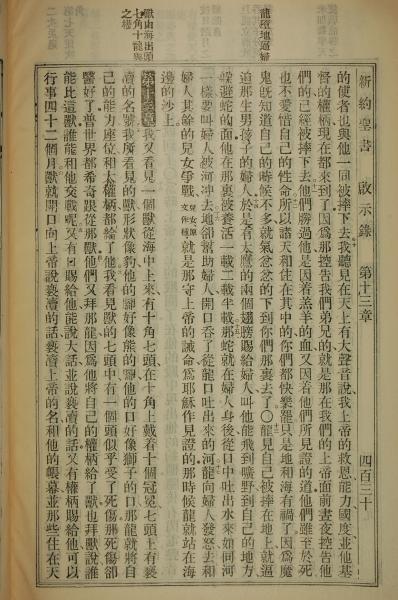 新約聖書 啟示錄 第十三章 四百三十
的使者也與他一同被摔下去我聽見在天上有大聲音說我上帝的救恩能力國度並他基
督的權柄現在都來到了因爲那控告我們弟兄的就是那在我們的上帝面前晝夜控告他
們的已經被摔下去他們勝過他是因着羔羊的血又因着他們所見證的道他們雖至於死
也不愛惜自己的性命所以諸天和住在其中的你們都快樂罷只是地和海有禍了因爲魔
鬼旣知道自己的時候不多就氣忿忿的下到你們那裏去了〇龍見自己被摔在地上就逼
迫那生男孩子的婦人於是有大鷹的兩個翅膀賜給婦人叫他能飛到曠野到自己的地方
躱避蛇的面他在那裏被養活一載二載半載那蛇就在婦人身後從口中吐出水來如同河
一樣要叫婦人被河冲去地卻幫助婦人開口吞了從龍口吐出來的河龍向婦人發怒去和
婦人其餘的兒女爭戰兒女原文作種就是那守上帝的誡命爲耶穌作見證的那時候龍就站在海
邊的沙上
第十三章我又看見一個獸從海中上來有十角七頭在十角上戴着十個冠冕七頭上有褻
瀆的名號我所看見的獸形狀像豹他的腳好像熊的腳他的口好像獅子的口那龍就將自
己的能力座位和大權柄都給了他我看見獸的七頭中有一個頭似乎受了死傷那死傷卻
醫好了普世界都希奇跟從那獸他們又拜那龍因爲他將自己的權柄給了獸也拜獸說誰
能比這獸誰能和他交戰呢又有口賜給他能說大話並說褻瀆的話又有權柄賜給他可以
行事四十二個月獸就開口向上帝說褻瀆的話褻瀆上帝的名和他的帳幕並那些住在天
獸由海出頭
七角十龍與
之權